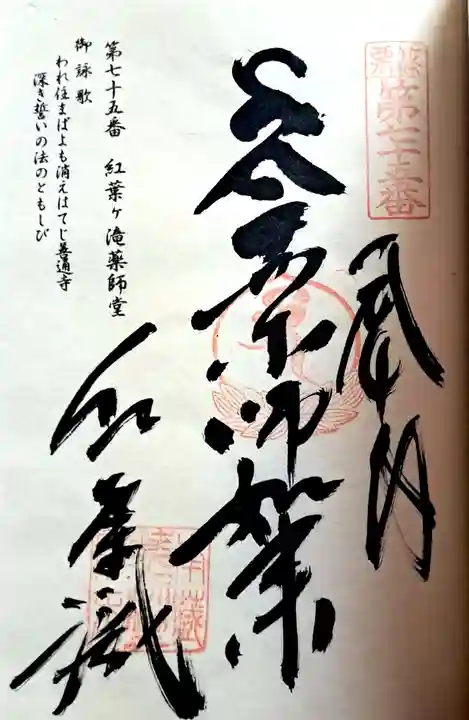 篠栗
第七十五番
薬師如来
紅葉瀧
第七十五番　紅葉ヶ滝薬師堂
御詠歌
われ住まばよも消えはてじ善通寺
深き誓いの法のともしび